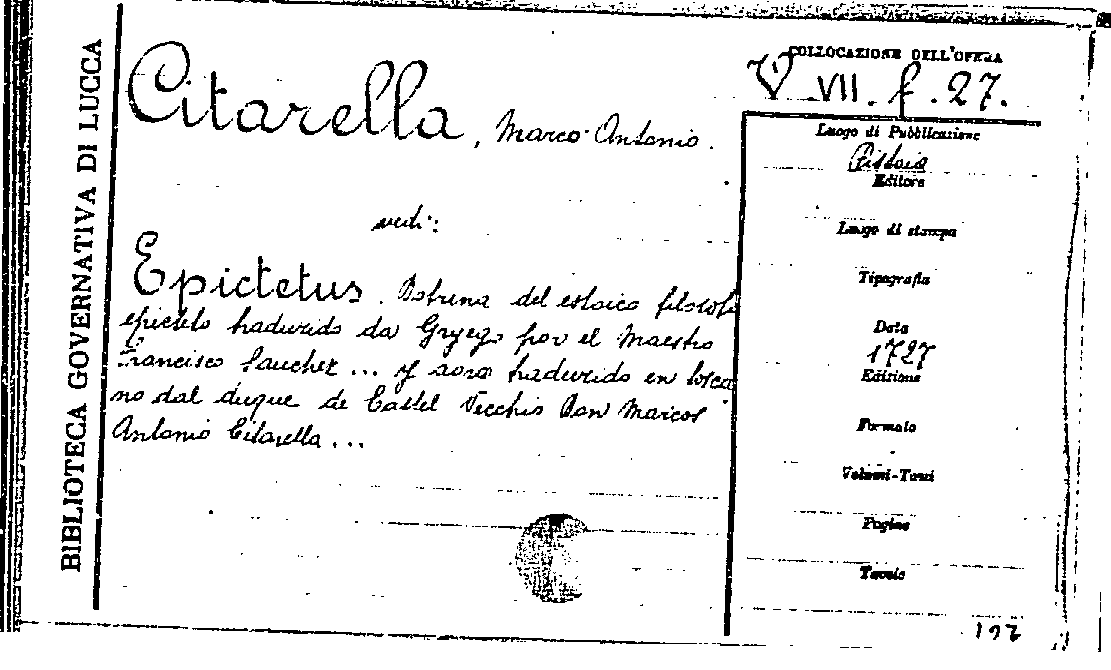 BIBLIOTECA GOVERNATIVA DI LUCCA
Citarella, Marco Antonio.
vedi:
Epictetus. Dotrina del estoico filosofo
epicteto traducido da Gryego por el Maestro
Francisco Sanchez ... y aora traducido en tosca
no dal duque de Castel Vecchio Don Marcos
Antonio Citarella ...
COLLOCAZIONE DELL'OPERA
VII. f. 27.
Luogo di Pubblicazione
Pistoia
Editore
Luogo di stampa
Tipografia
Data
1727
Edizione
Formato
Volumi-Tomi
Pagine
Tavole
197